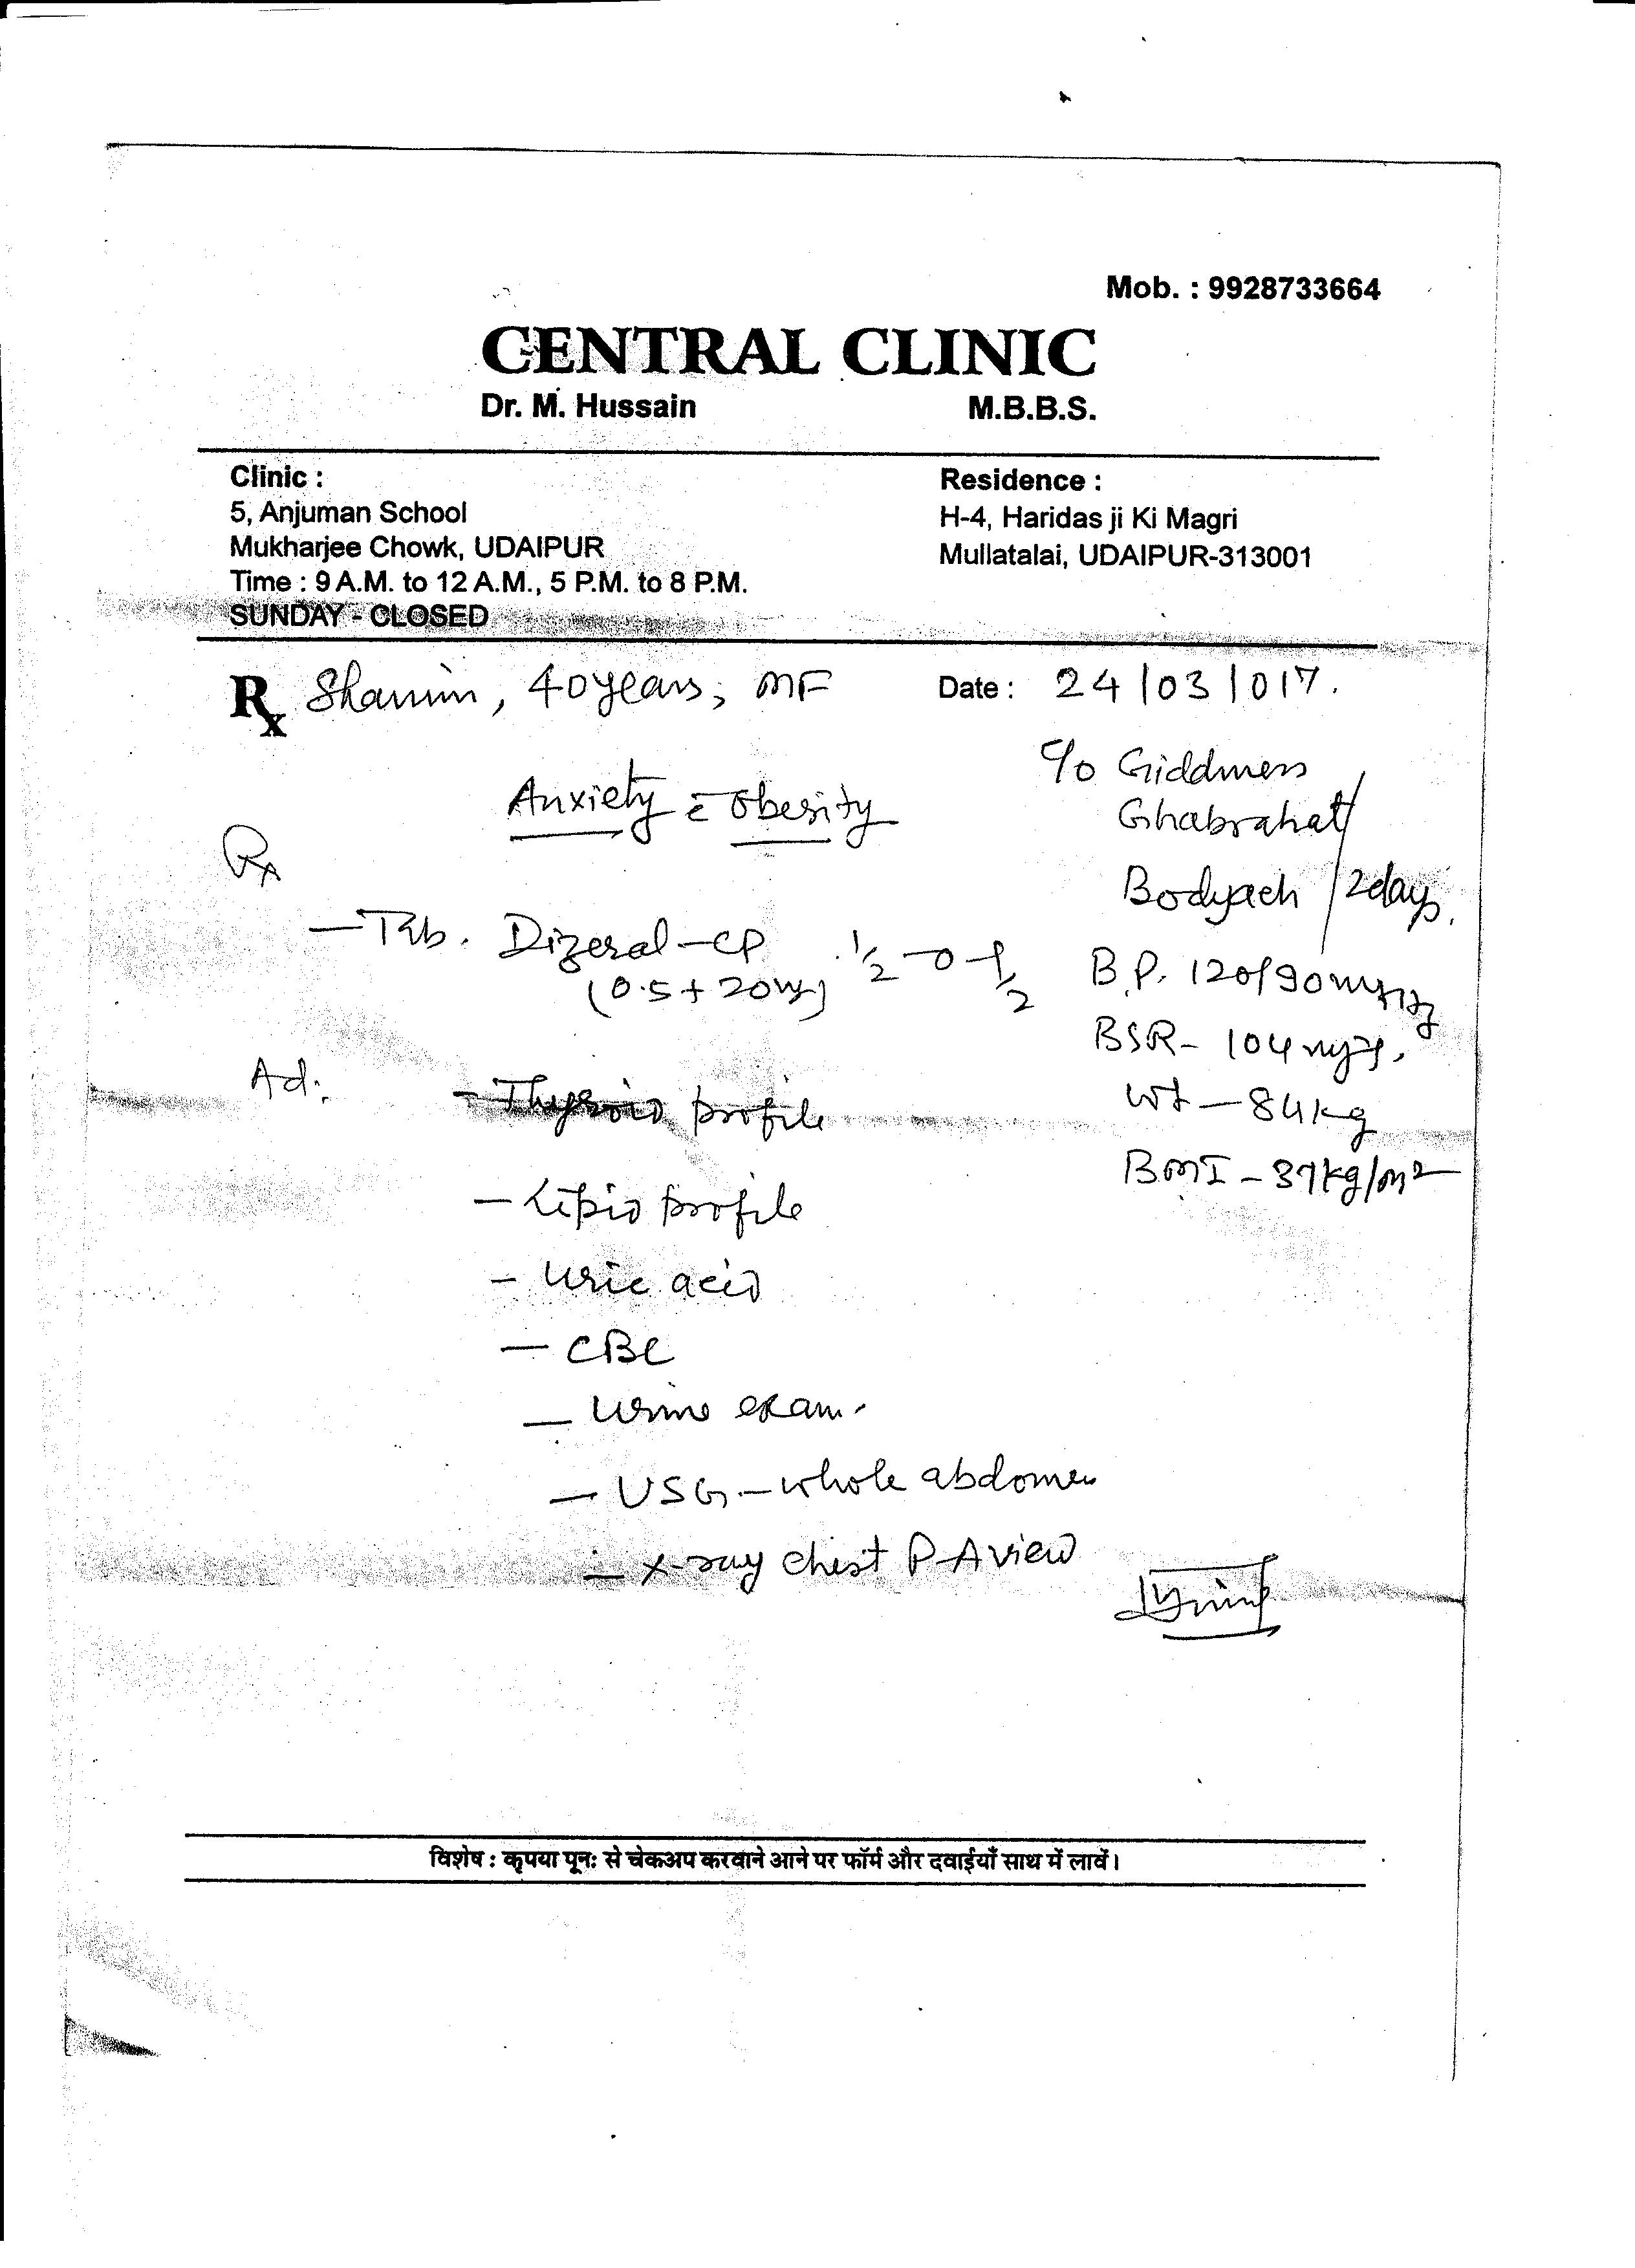 Mob. : 9928733664
CENTRAL CLINIC
Dr. M. Hussain M.B.B.S.
Clinic :
5, Anjuman School
Mukharjee Chowk, UDAIPUR
Time : 9 A.M. to 12 A.M., 5 P.M. to 8 P.M.
SUNDAY - CLOSED
Residence :
H-4, Haridas ji Ki Magri
Mullatalai, UDAIPUR-313001
Rx Shamim, 40 years, MF Date : 24/03/017.
c/o Giddiness
Ghabrahat
Bodyach /2days.
Anxiety c̄ Obesity
Rx
- Tab. Dizeral-CP ½-0-½
(0.5+20mg)
B.P. 120/90mmHg
BSR- 104mg%.
Wt - 84kg
BMI - 37kg/m²
Ad:
- Thyroid profile
- Lipid profile
- Uric acid
- CBC
- Urine exam.
- USG - whole abdomen
- X-ray chest P-A view
विशेष : कृपया पून: से चेकअप करवाने आने पर फॉर्म और दवाईयाँ साथ में लावें।